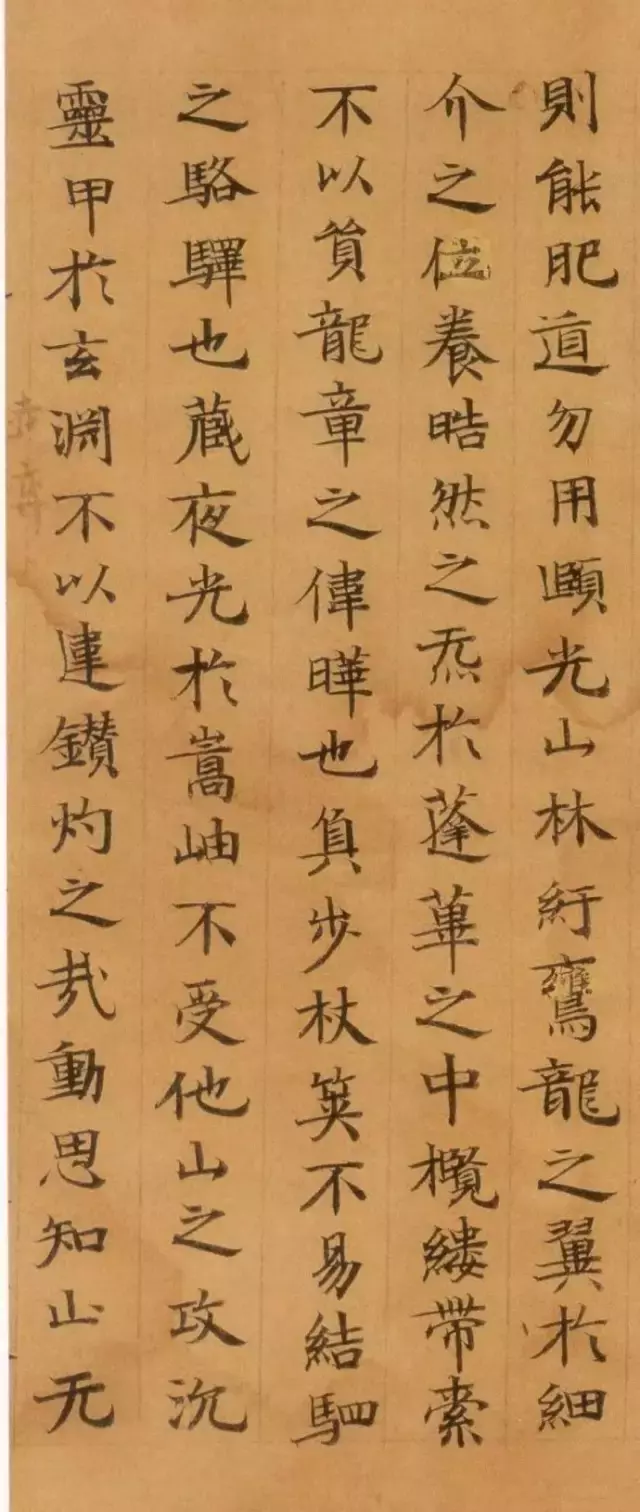 則能肥道勿用頤光山林紆鸞龍之翼於細
介之位養晧然之炁於蓬蓽之中欖縷帶索
不以貿龍章之偉曄也負步杖筴不易結駟
之駱驛也藏夜光於嵩岫不受他山之攻沉
靈甲於玄淵不以違鑽灼之烖動思知止无